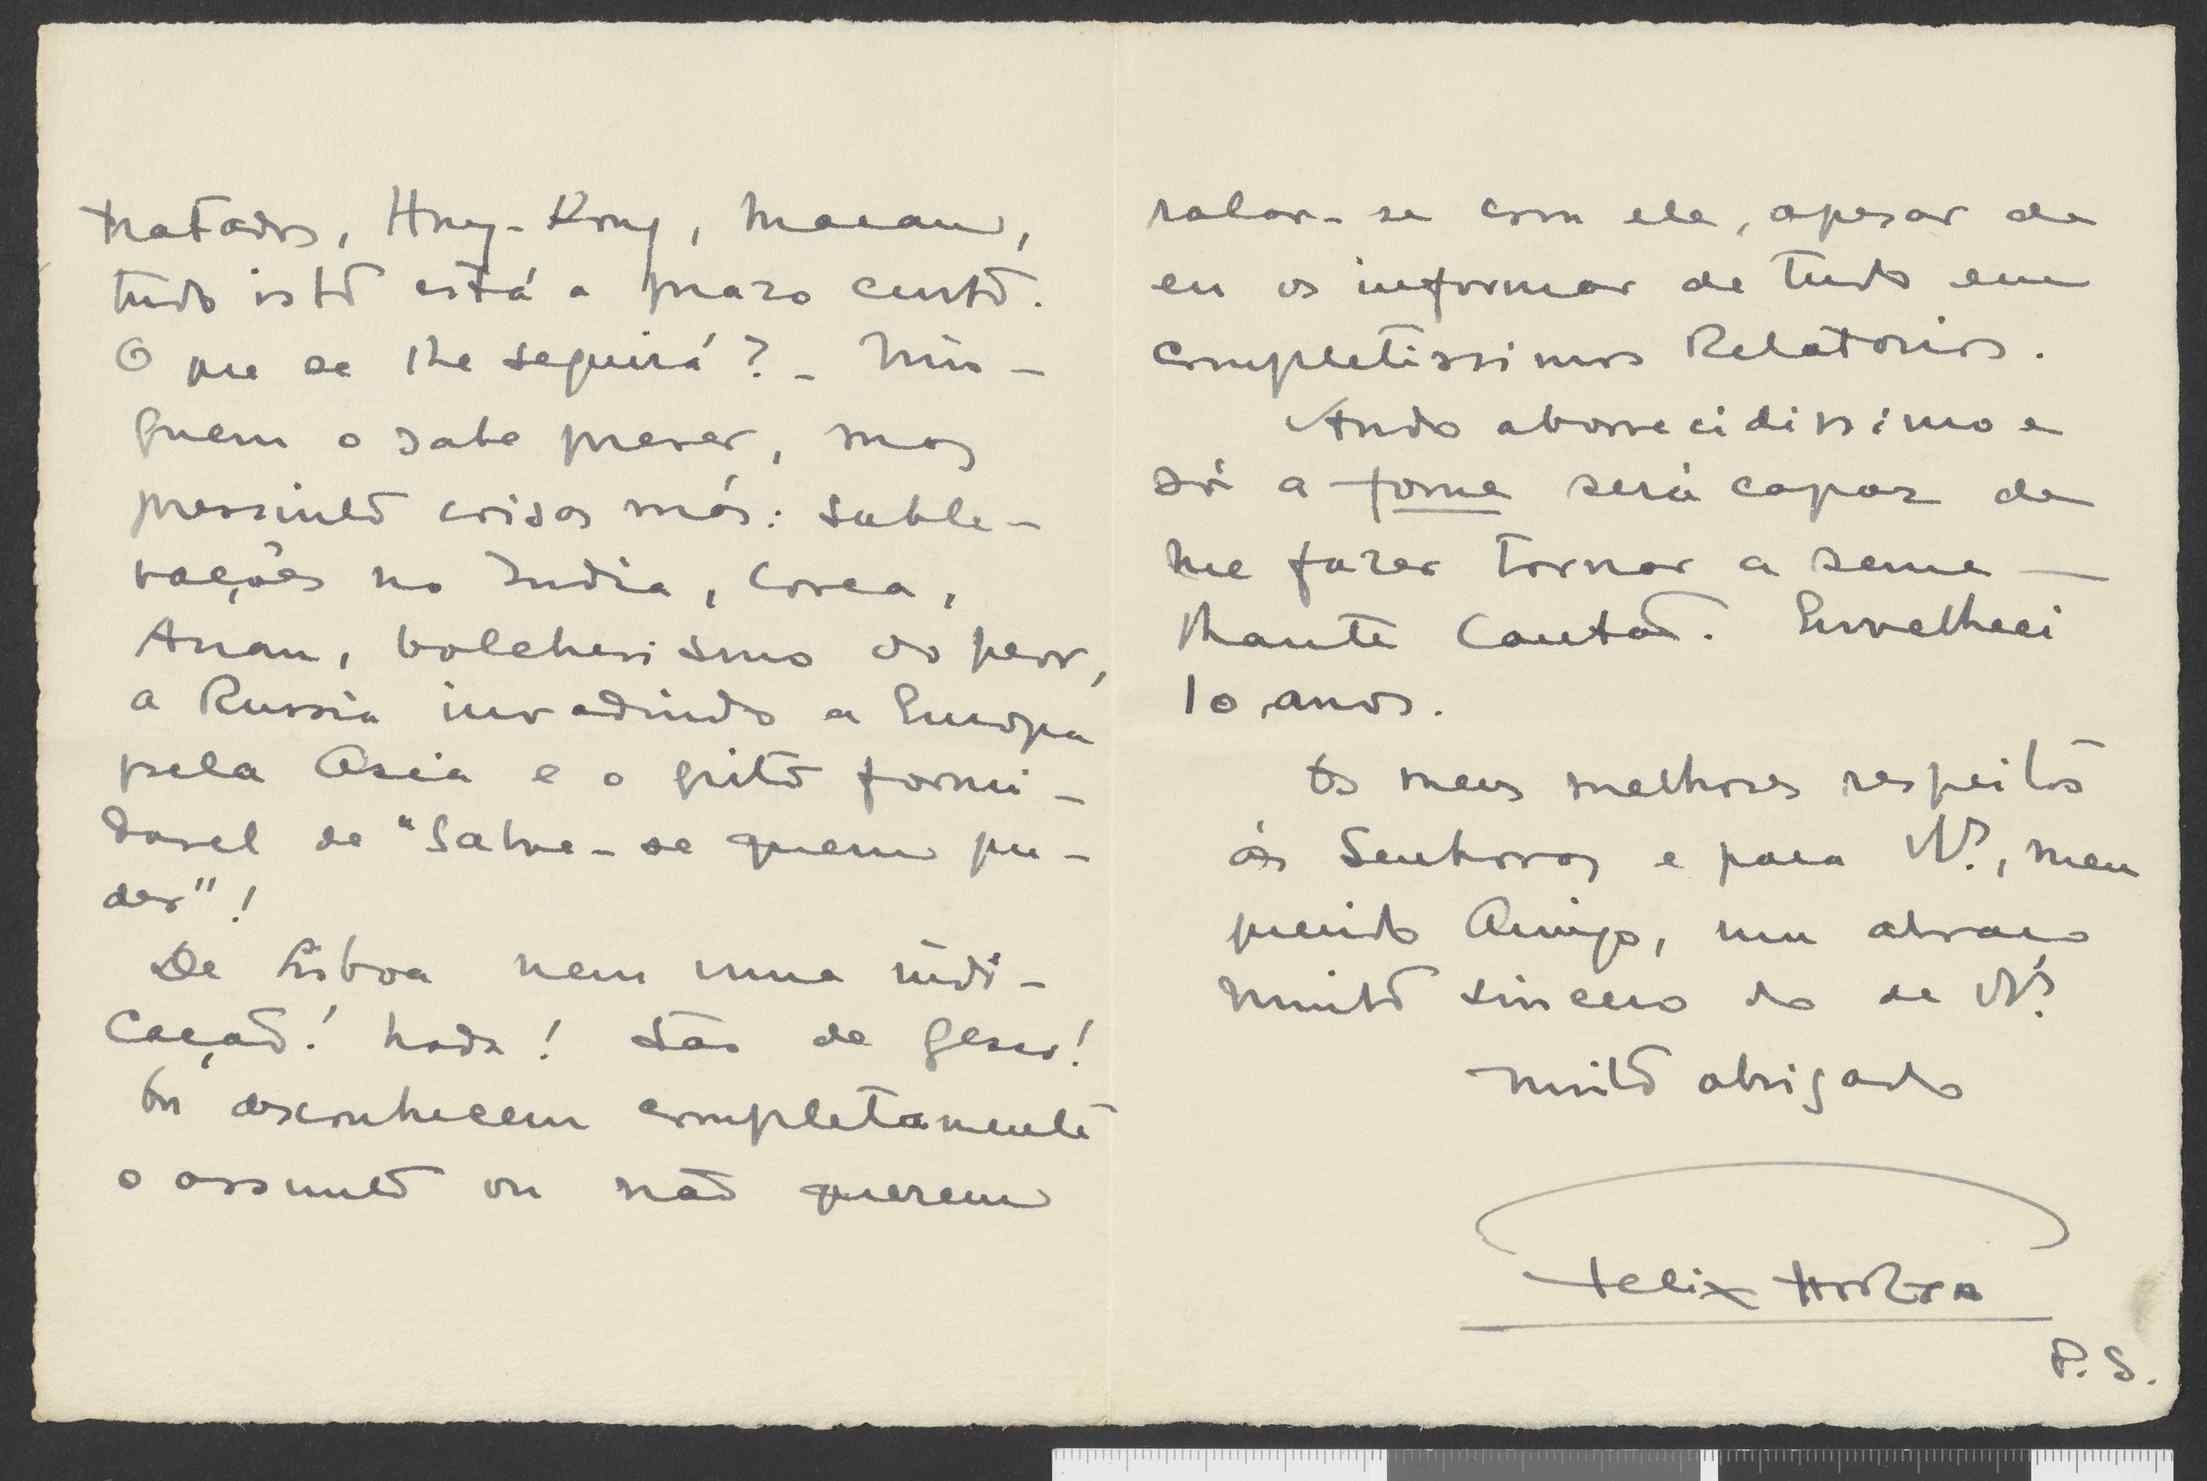 tratados, Hong-Kong, Macau,
tudo isto está a prazo curto.
O que se lhe seguirá? - Nin-
guem o sabe prever, mas
pressinto coisas más: suble-
vações na India, Corea,
Anan, bolchevismo do peor,
a Russia invadindo a Europa
pela Asia e o grito formi-
davel de "Salve-se quem pu-
der"!
De Lisboa nem uma indi-
cação! Nada! São de gesso!
Ou desconhecem completamente
o assunto ou não querem
ralar-se com ele, apesar de
eu os informar de tudo em
completissimos Relatorios.
Ando aborrecidissimo e
só a fome será capaz de
me fazer tornar a seme-
lhante Cantão. Envelheci
10 anos.
Os meus melhores respeitos
ás Senhoras e para V., meu
querido Amigo, um abraço
muito sincero do de V.
muito obrigado
Felix Horta
P.S.